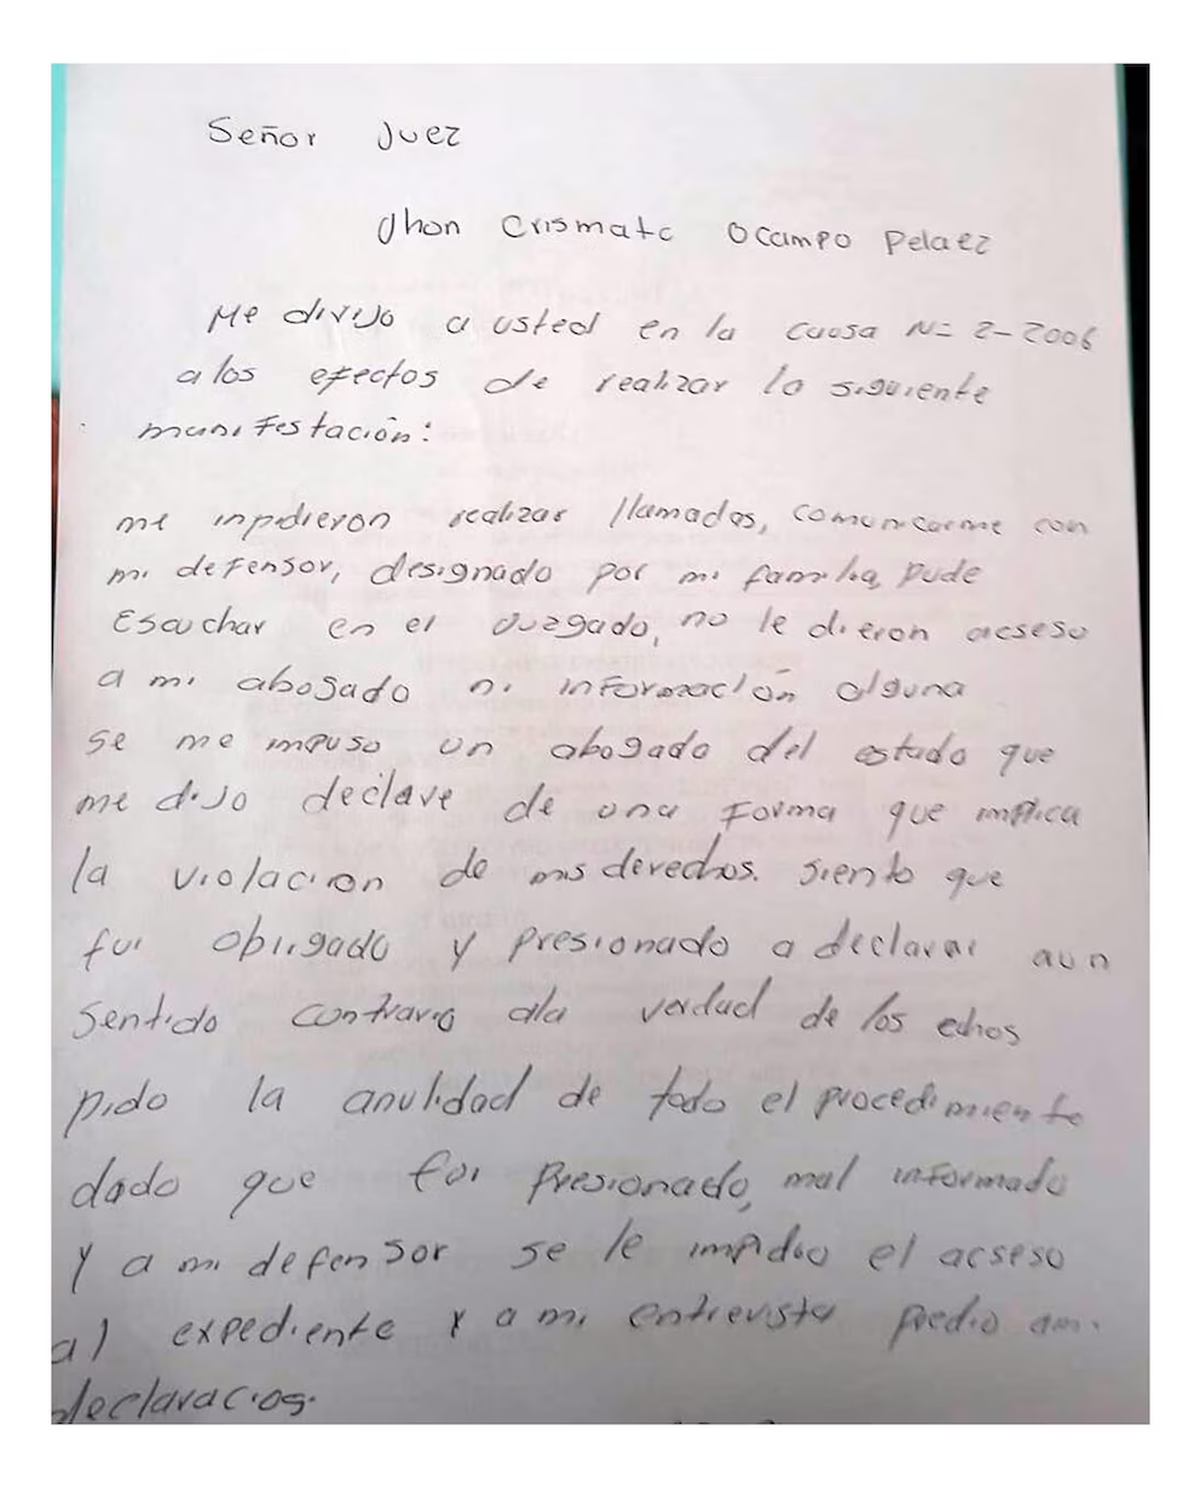 Señor Juez
Jhon Crismatc Ocampo Pelaez
Me dirijo a usted en la causa N= 2-2006
a los efectos de realizar lo siguiente
manifestación:
me inpidieron realizar llamadas, comunicarme con
mi defensor, designado por mi familia, pude
Escuchar en el Juzgado, no le dieron acseso
a mi abogado ni información alguna
se me impuso un abogado del estado que
me dijo declare de una forma que implica
la violacion de mis derechos. siento que
fui obligado y presionado a declarar aun
sentido contrario ala verdad de los echos
pido la anulidad de todo el procedimiento
dado que fui presionado, mal informado
y a mi defensor se le impidio el acseso
al expediente y a mi entrevista predio ami
declaracios.